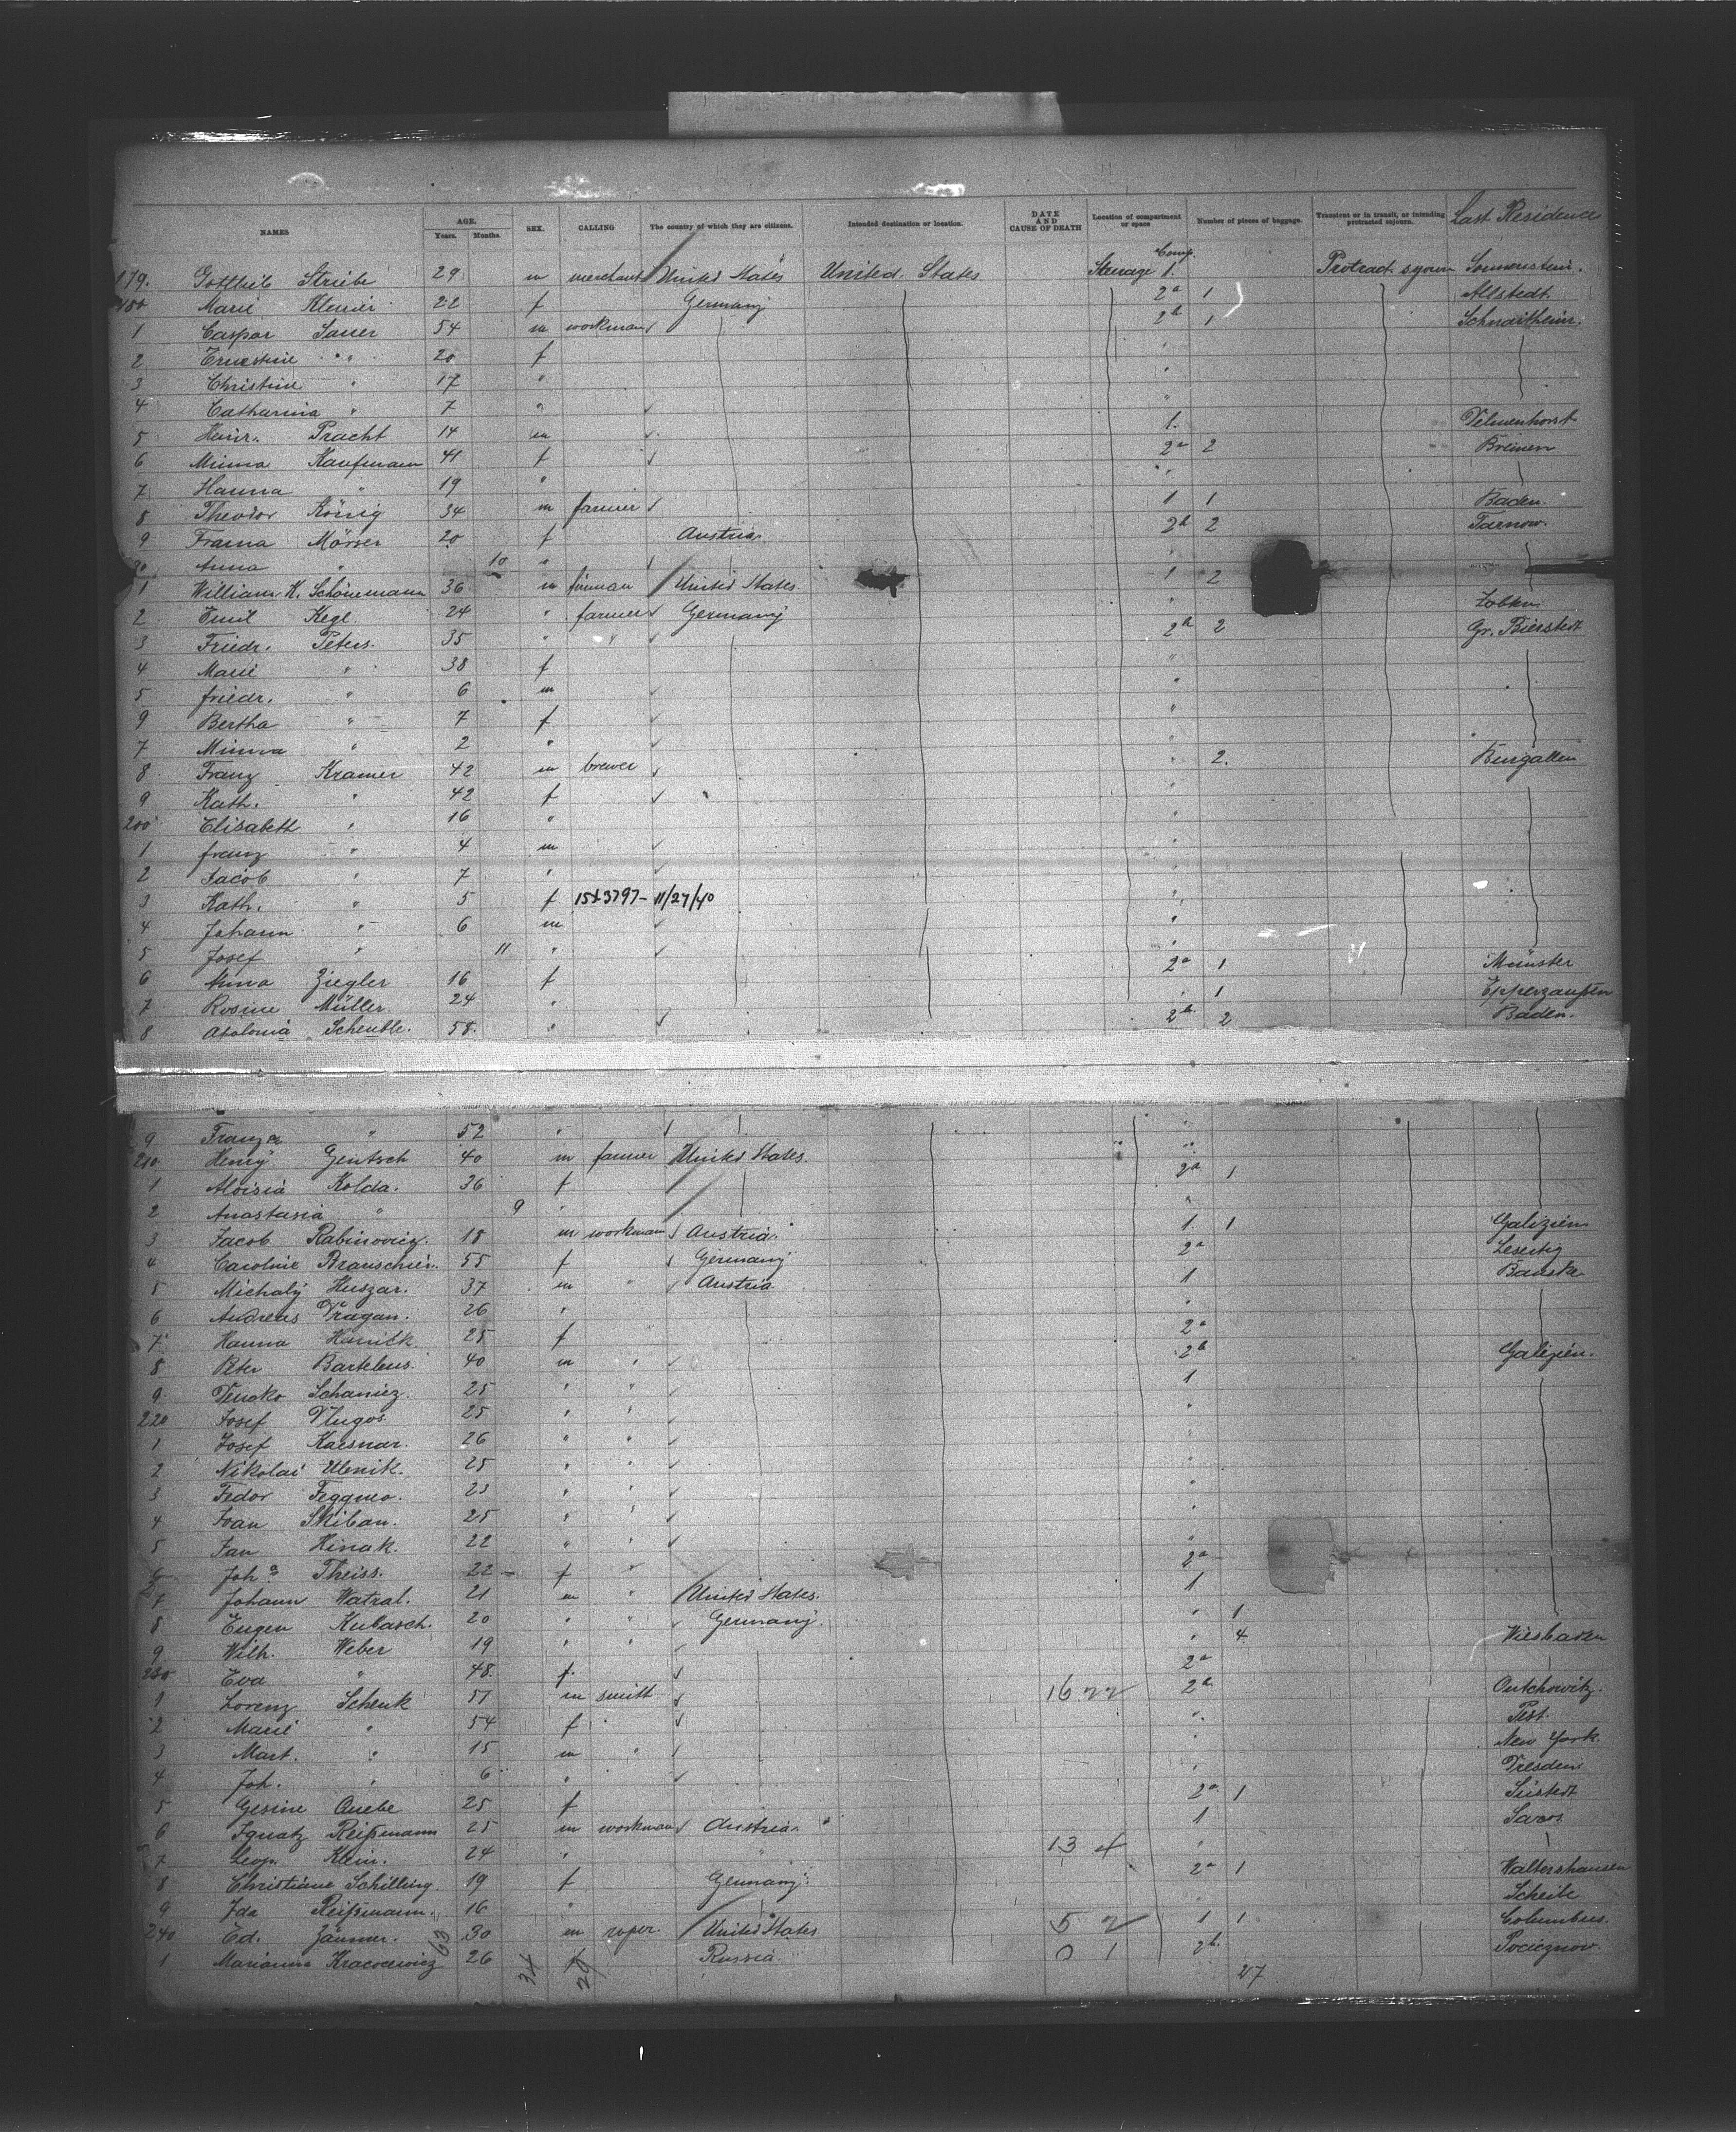 NAMES AGE. Years. Months. SEX. CALLING The country of which they are citizens. Intended destination or location. DATE AND CAUSE OF DEATH Location of compartment or space Number of pieces of baggage. Transient or in transit, or intending protracted sojourn. Last Residence
179. Gottlieb Striebe 29 m merchant United States United States Steerage Comp. 1. Protract. sojourn
180 Marie 22 f Germany 2a 1 Allstedt
1 Caspar Sauer 54 m workman 2b 1 Schnaitheim.
2 Ernestine " 20 f "
3 Christine " 17 " "
4 Catharina " 7 " "
5 Heinr. Pracht 14 m 1. Delmenhorst
6 Minna Kaufmann 41 f 2a 2 Bremen
7 Hanna " 19 " "
8 Theodor König 34 m farmer 1 1 Baden
9 20 f Austria. 2b 2 Tarnow.
90 Anna " 10 " "
1 William K. Schönemann 36 m United States 1 2
2 Emil Kegl 24 " farmer Germany "
3 Friedr. Peters. 35 " " 2b 2 Gr. Bierstedt
4 Marie " 38 f "
5 friedr. " 6 m "
9 Bertha " 7 f "
7 Minna " 2 " "
8 Franz Kramer 42 m brewer " 2.
9 Kath. " 42 f "
200 Elisabeth " 16 " "
1 franz " 4 m "
2 Jacob " 7 " "
3 Kath. " 5 f 15X3797- 11/27/40 "
4 Johann " 6 m "
5 Josef " 11 " "
6 Anna Ziegler 16 f 2a 1 Münster
7 Rosine Müller 24 " " 1
8 Apolonia Scheuble. 58. " 2b. 2 Baden.
9 " 52 " "
210 Henry Gentsch 40 m farmer United States. "
1 Aloisia Kolda. 36 f 2a 1
2 Anastasia " 9 " "
3 Jacob Rabinovicz. 18 m workman Austria. 1. 1 Galizien
4 Caroline 55 f Germany 2a
5 Michaly Huszar. 37 m " Austria 1
6 Andreas Dragan. 26 " "
7 Hanna 25 f 2a
8 Peter 40 m " 2b Galizien.
9 25 " " 1
220 Josef Dlugos 25 " " "
1 Josef 26 " " "
2 Nikolai 25 " " "
3 Fedor 23 " " "
4 Ivan Skiban. 25 " " "
5 Jan Hinak. 22 " " "
6 Joha Theiss. 22 f " 2a
7 Johann Watral. 21 m " United States. 1
8 Eugen Kubasch. 20 " " Germany. " 1
9 Wilh. Weber 19 " " " 4 Wiesbaden
230 Eva " 48. f. 2a
1 Lorenz Schenk 51 m smitt 16 22 2b
2 Marie " 54 f " " Pest.
3 Mart. " 15 m " " New York.
4 Joh. " 6 " " Dresden
5 Gesine Quebe 25 f 2a 1
6 Ignatz Reißmann 25 m workman Austria. 1 Saros
7 Leop. Klein. 24 " " 13 4 "
8 Christiane Schilling. 19 f Germany. 2a 1 Waltershausen
9 Ida Reißmann. 16 " " Scheibe
240 Ed. 30 m roper United States 5 2 1 1 Columbus.
1 Marianna 26 Russia. 0 1 2b.
63 34 29 27